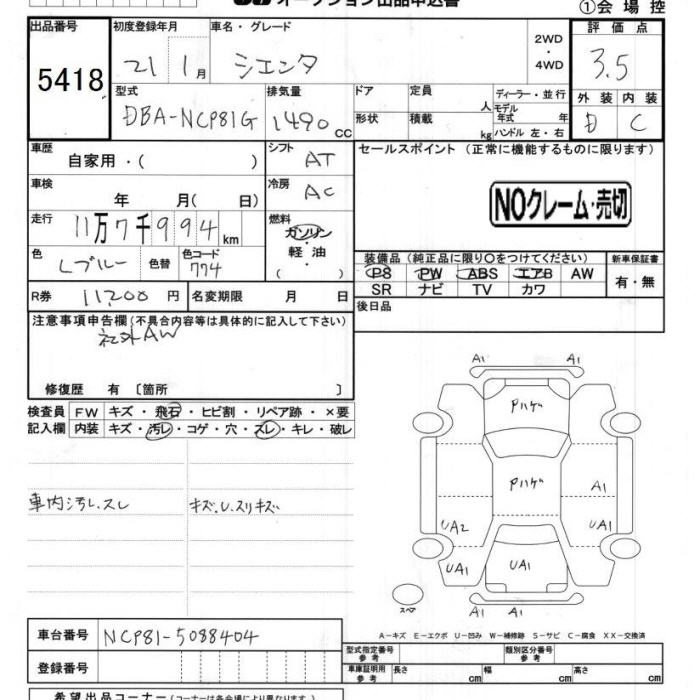 オークション出品申込書
①会場控
出品番号
5418
初度登録年月
21 1月
車名・グレード
シエンタ
2WD
・
4WD
評価点
3.5
外装 内装
D C
型式
DBA-NCP81G
排気量
1490 CC
ドア
形状
定員
人
積載
kg
ディーラー・並行
モデル
年式 年
ハンドル 左・右
車歴
自家用・( )
シフト
AT
セールスポイント (正常に機能するものに限ります)
NOクレーム・売切
車検
年 月( 日)
冷房
AC
走行
11万7千994km
燃料
ガソリン
・
軽油
・
( )
色
Lブルー
色替
色コード
774
装備品 (純正品に限り○をつけてください)
PS PW ABS エアB AW
SR ナビ TV カワ
新車保証書
有・無
R券 11,200 円
名変期限 月 日
後日品
注意事項申告欄 (不具合内容等は具体的に記入して下さい)
社外AW
修復歴 有 〔箇所 〕
検査員
記入欄
FW キズ・飛石・ヒビ割・リペア跡・×要
内装 キズ・汚レ・コゲ・穴・スレ・キレ・破レ
車内汚レ、スレ
キズ、U、スリキズ
A1 A1
Pハゲ
Pハゲ
A1
UA2 UA1
UA1 UA1 UA1
スペア
A1 A1
A-キズ E-エクボ U-凹み W-補修跡 S-サビ C-腐食 XX-交換済
車台番号 NCP81-5088404
登録番号
型式指定番号
参考
類別区分番号
参考
車庫証明用
参考
長さ cm
幅 cm
高さ cm
希望出品コーナー (コーナーは各会場により異なります)